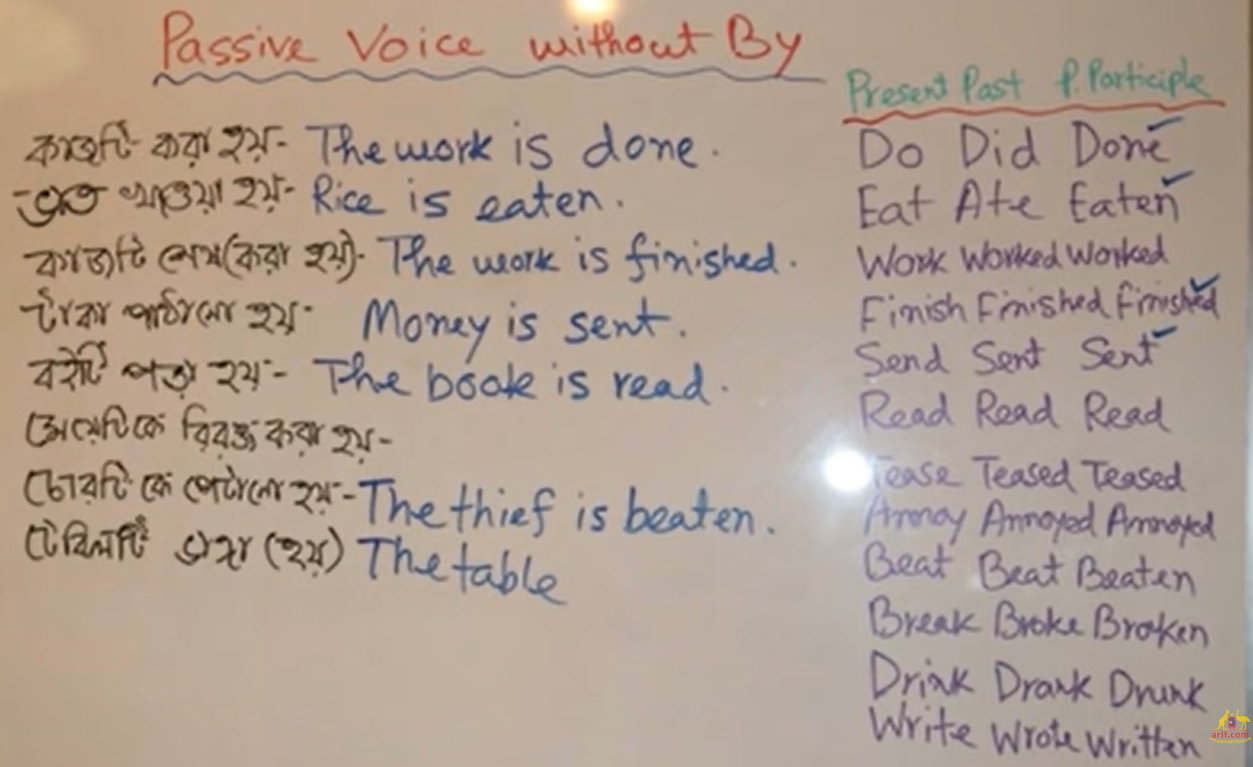 Passive Voice without By
কাজটি করা হয়- The work is done.
ভাত খাওয়া হয়- Rice is eaten.
কাজটি শেষ (করা হয়)- The work is finished.
টাকা পাঠানো হয়- Money is sent.
বইটি পড়া হয়- The book is read.
মেয়েটিকে বিরক্ত করা হয়-
চোরটি কে পেটানো হয়- The thief is beaten.
টেবিলটি ভাঙ্গা (হয়) The table
Present Past P. Participle
Do Did Done
Eat Ate Eaten
Work Worked Worked
Finish Finished Finished
Send Sent Sent
Read Read Read
Tease Teased Teased
Annoy Annoyed Annoyed
Beat Beat Beaten
Break Broke Broken
Drink Drank Drunk
Write Wrote Written
arif.com